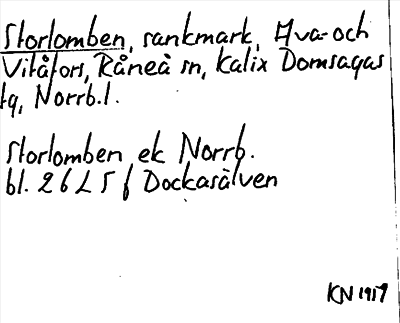 Storlomben, sankmark, Hva- och
Vitåfors, Råneå sn, Kalix Domsagas
tg, Norrb.l.
Storlomben ek Norrb.
bl. 26 L 5 f Dockasälven
KN 1917